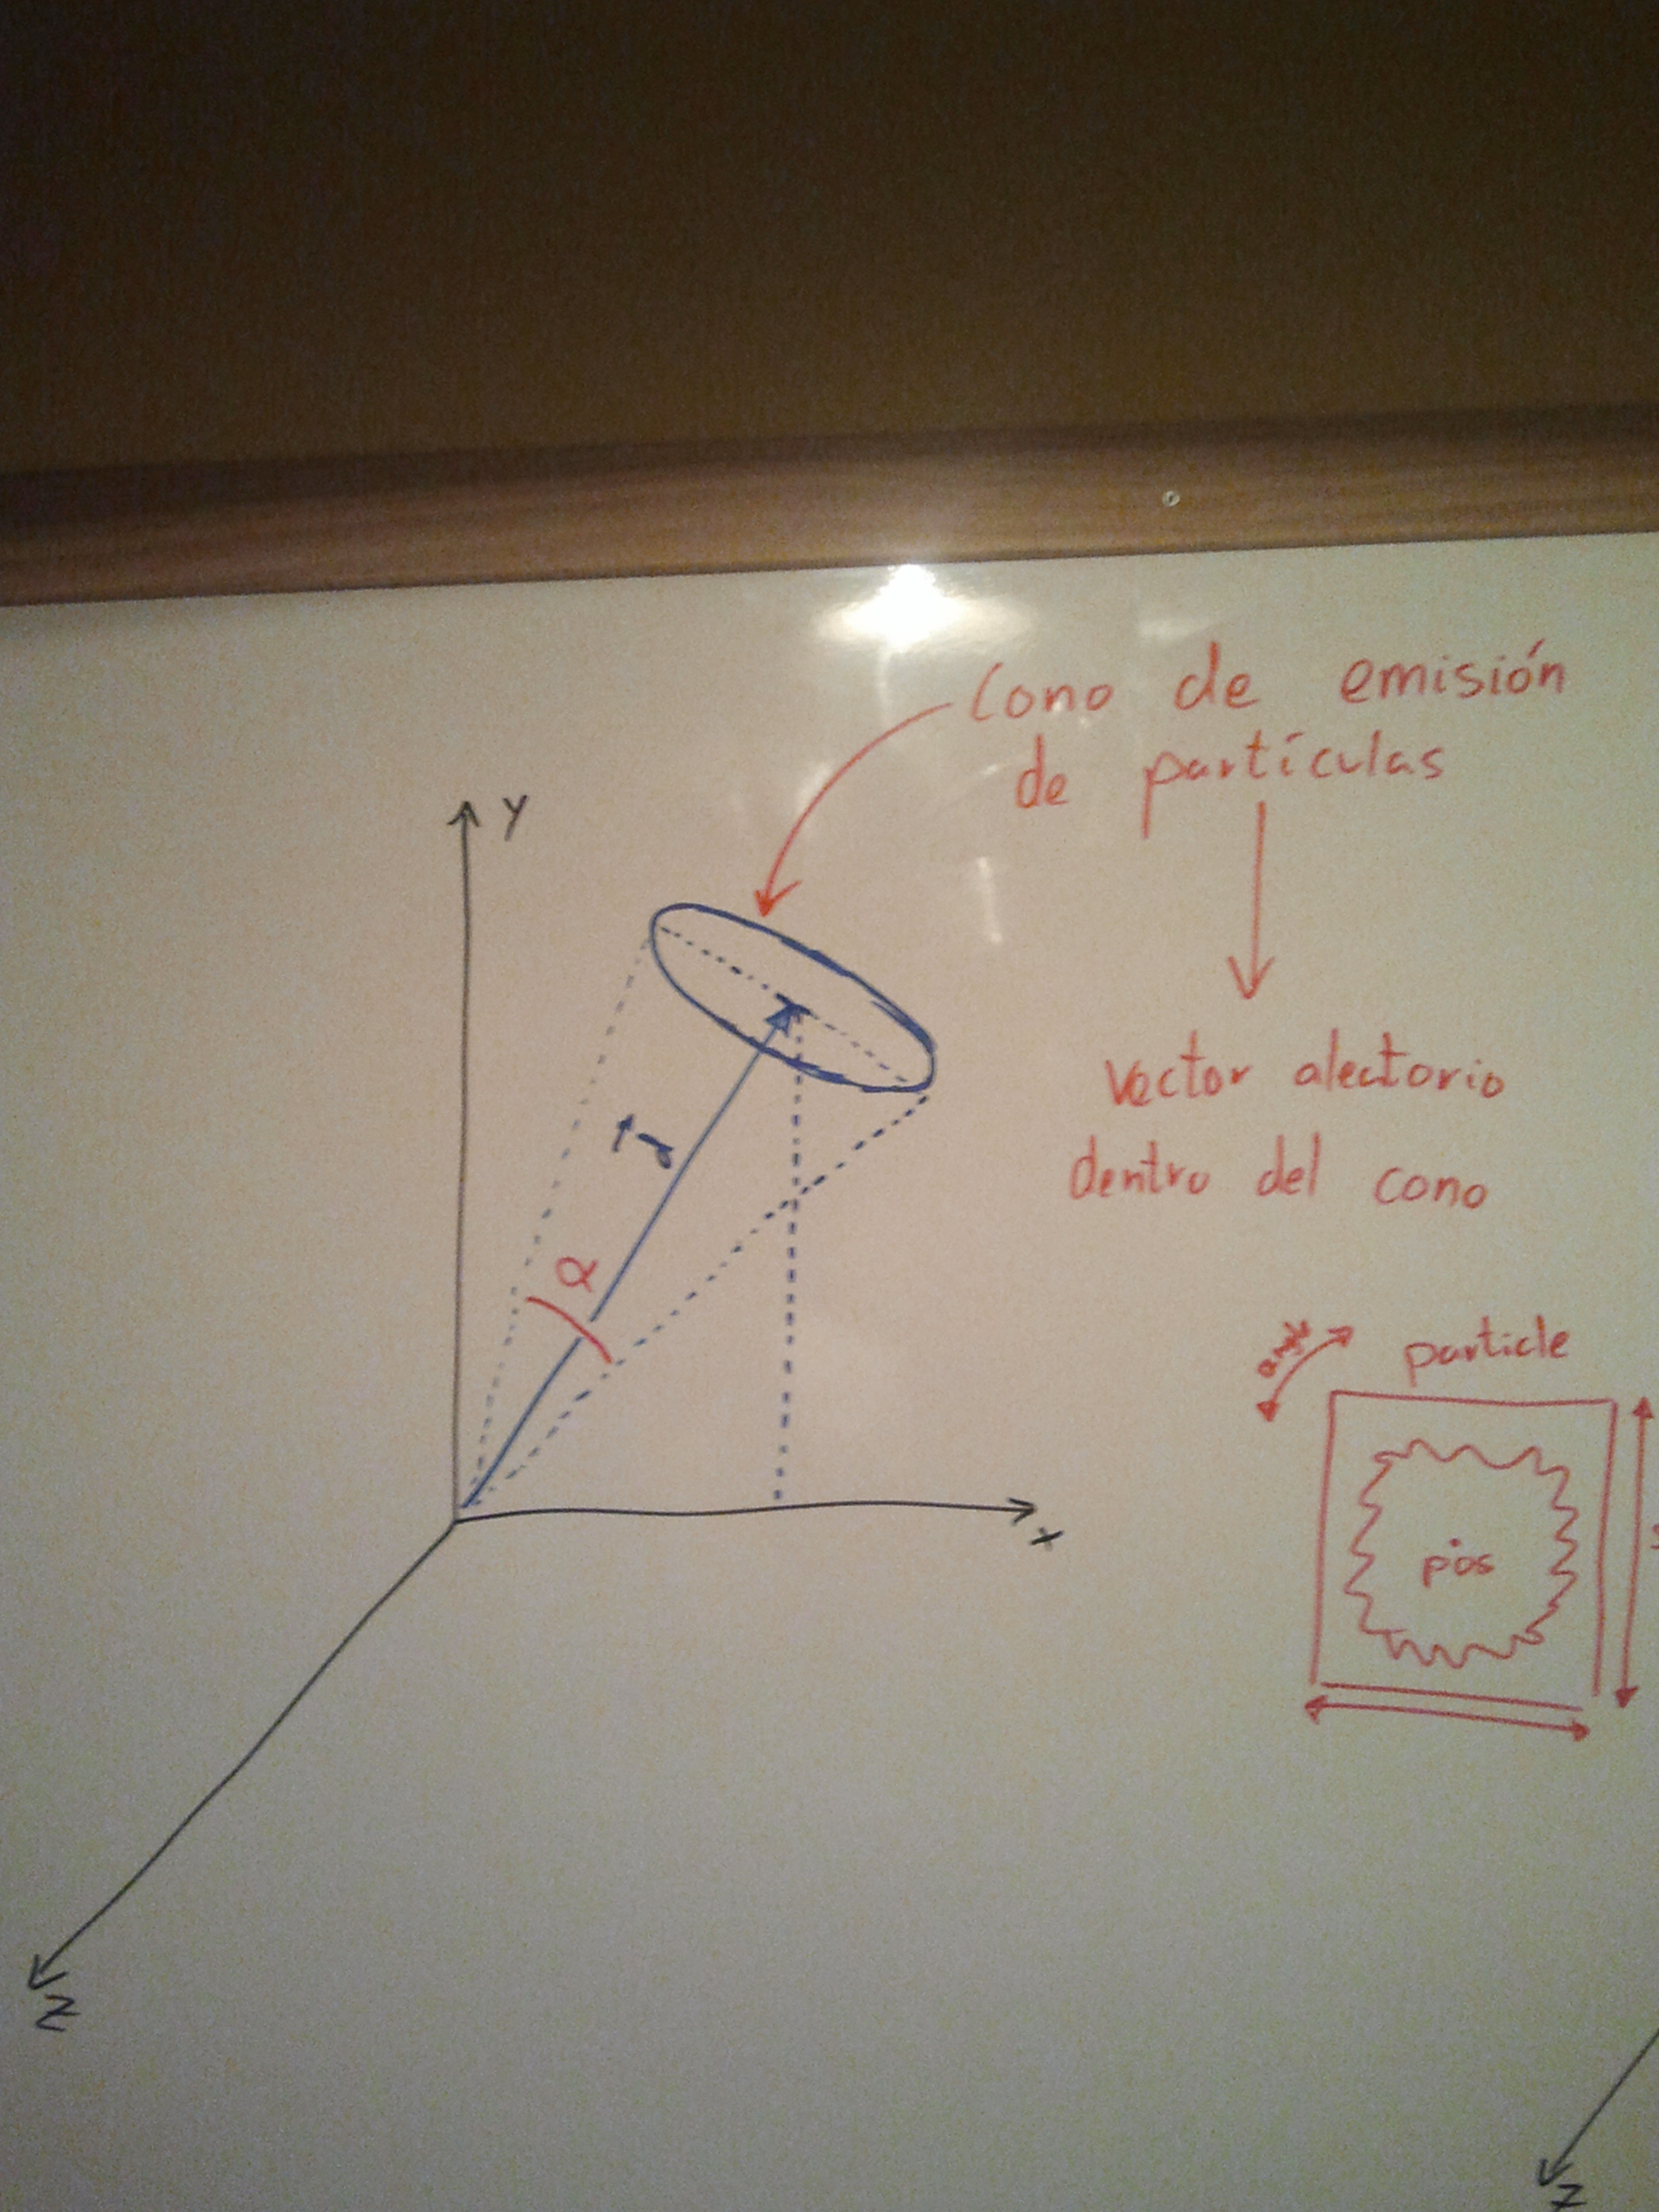 Cono de emisión
de partículas
Y
vector aleatorio
dentro del cono
α
particle
pos
x
z
z